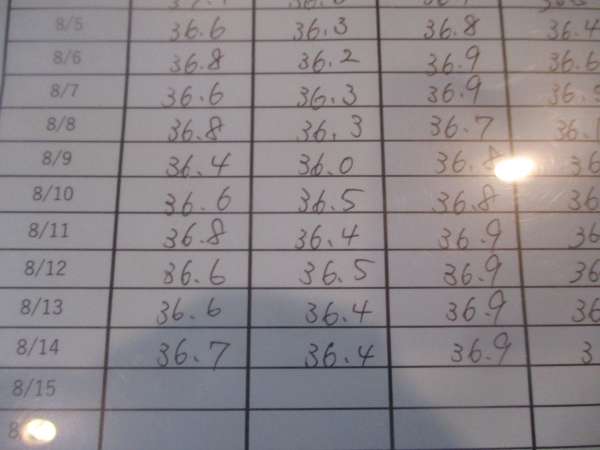 8/5 36.6 36.3 36.8 36.4
8/6 36.8 36.2 36.9 36.6
8/7 36.6 36.3 36.9
8/8 36.8 36.3 36.7
8/9 36.4 36.0 36.8 36
8/10 36.6 36.5 36.8 36
8/11 36.8 36.4 36.9 36
8/12 36.6 36.5 36.9 36
8/13 36.6 36.4 36.9 36
8/14 36.7 36.4 36.9 3
8/15